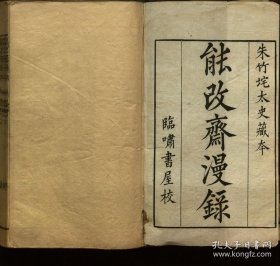 朱竹垞太史藏本
能改齋漫錄
臨嘯書屋校
孔夫子旧书网